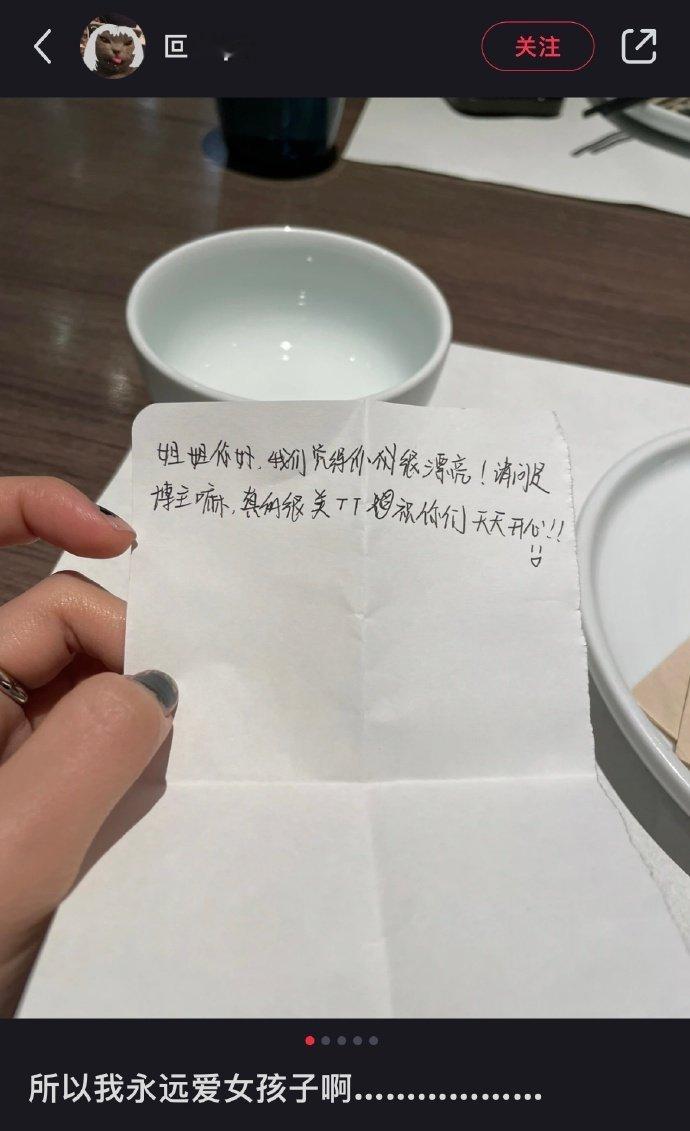 回
关注
姐姐你好，我们觉得你们很漂亮！请问是
博主嘛，真的很美TT 祝你们天天开心!!
所以我永远爱女孩子啊………………